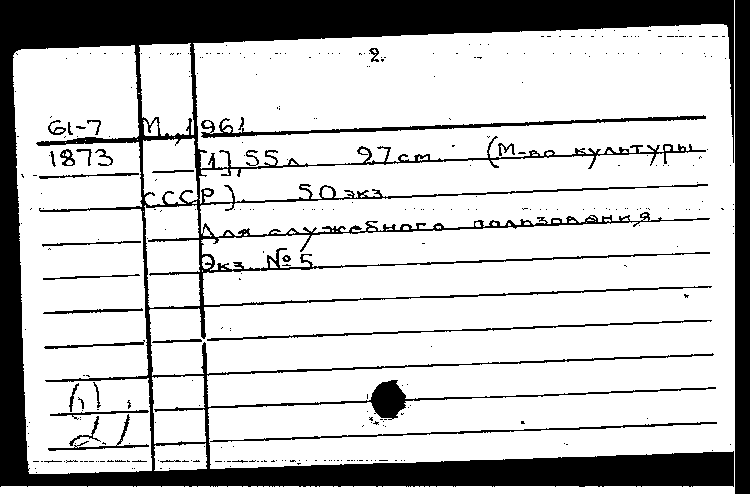 2.
61-7 М., 1961
1873 [1], 55 л. 27 см. (М-во культуры
СССР). 50 экз.
Для служебного пользования.
Экз. № 5